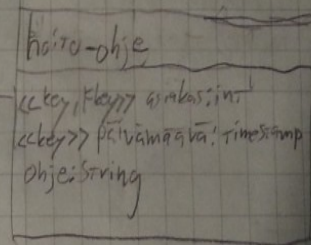 hoito-ohje
<<key, fkey>> asiakas:int
<<key>> päivämäärä: timestamp
ohje:string